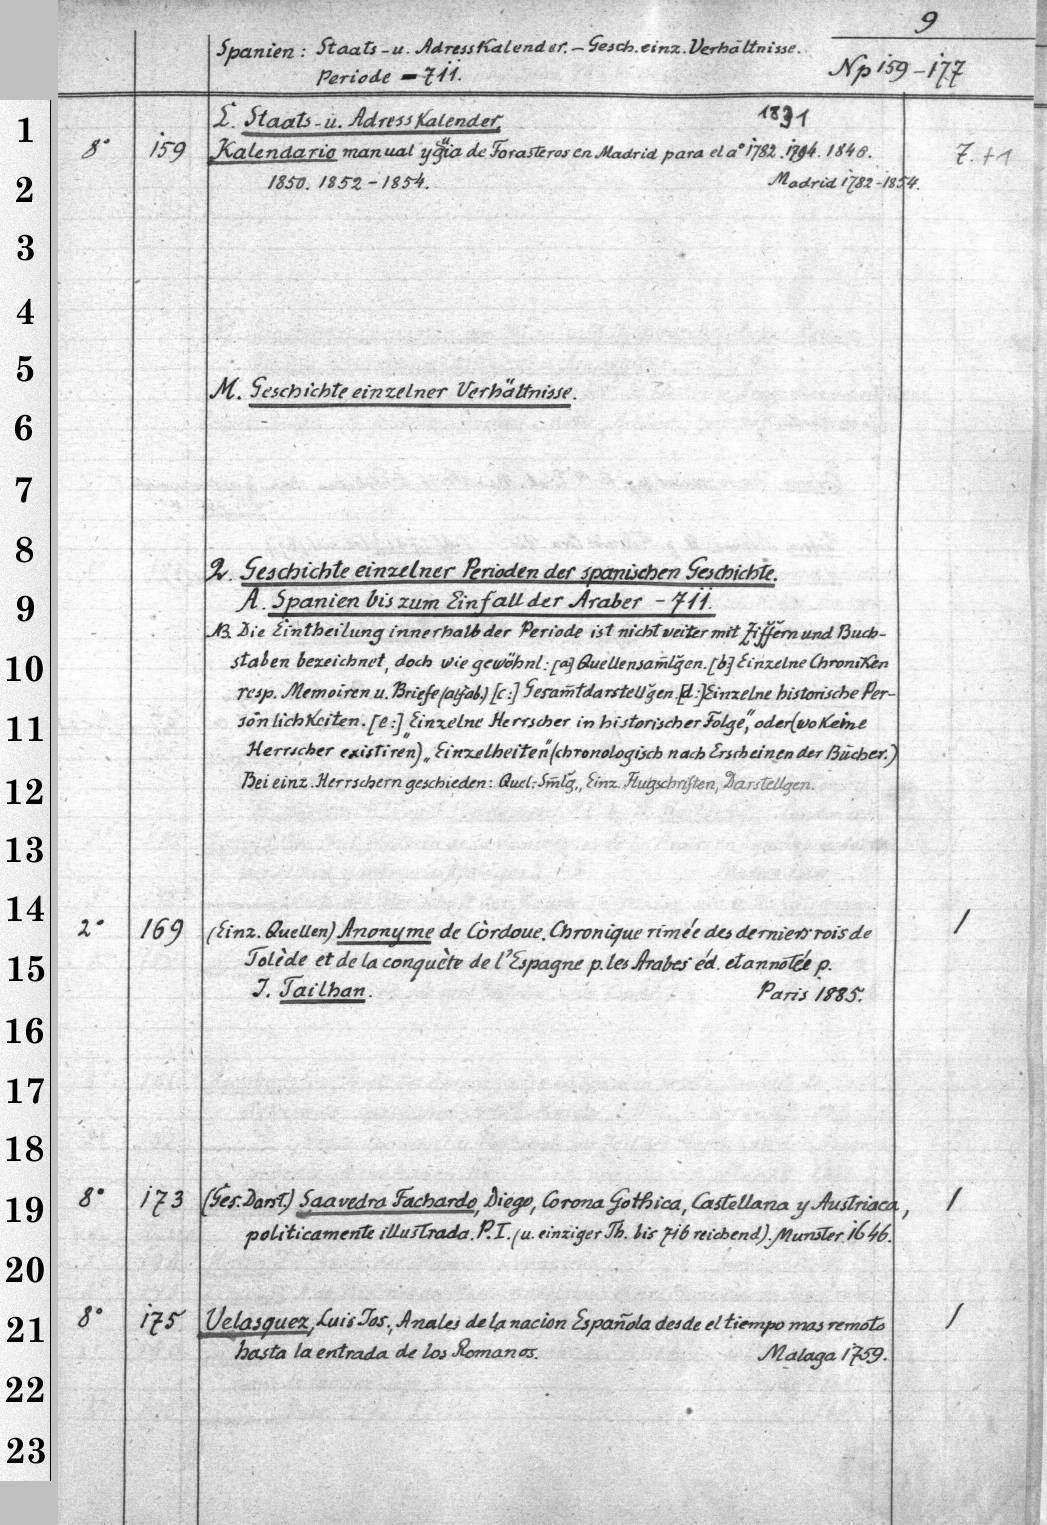 9
Spanien: Staats- u. Adresskalender. – Gesch. einz. Verhältnisse.
Periode – 711.
Np 159–177
L. Staats- u. Adresskalender.
1831
8° 159 Kalendario manual y guia de Forasteros en Madrid para el a° 1782. 1794. 1848. 7. +1
1850. 1852–1854. Madrid 1782–1854.
M. Geschichte einzelner Verhältnisse.
2. Geschichte einzelner Perioden der spanischen Geschichte.
A. Spanien bis zum Einfall der Araber – 711.
NB. Die Eintheilung innerhalb der Periode ist nicht weiter mit Ziffern und Buch-
staben bezeichnet, doch wie gewöhnl: [a] Quellensam̄lg̃en. [b] Einzelne Chroniken
resp. Memoiren u. Briefe [c:] Gesam̄tdarstellg̃en. [d:] Einzelne historische Per-
sönlichkeiten. [e:] „Einzelne Herrscher in historischer Folge", oder (wo keine
Herrscher existiren) „Einzelheiten" (chronologisch nach Erscheinen der Bücher.)
Bei einz. Herrschern geschieden: Quel.-Sm̄lg̃., Einz. Flugschriften, Darstellgen.
2° 169 (Einz. Quellen) Anonyme de Còrdoue. Chronique rimée des derniers rois de 1
Tolède et de la conquète de l'Espagne p. les Arabes éd. et annotée p.
J. Tailhan. Paris 1885.
8° 173 (Ges. Darst.) Saavedra Fachardo, Diego, Corona Gothica, Castellana y Austriaca, 1
politicamente illustrada. P. I. (u. einziger Th. bis 716 reichend). Munster. 1646.
8° 175 Velasquez, Luis Jos., Anales de la nacion Española desde el tiempo mas remoto 1
hasta la entrada de los Romanos. Malaga 1759.
1
2
3
4
5
6
7
8
9
10
11
12
13
14
15
16
17
18
19
20
21
22
23